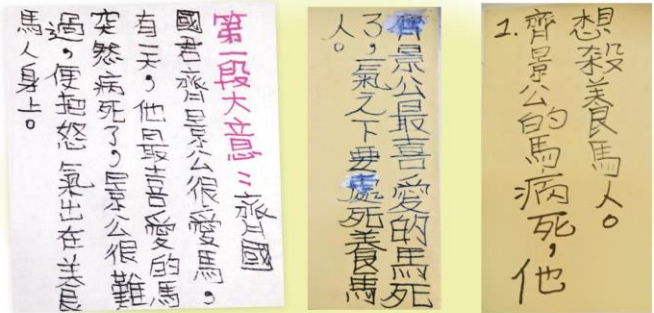 第一段大意：齊國
國君齊景公很愛馬，
有天，他最喜愛的馬
突然病死了，景公很難
過，便把怒氣出在養
馬人身上。
齊景公最喜愛的馬死
了，氣之下要處死養馬
人。
1.齊景公的馬病死，他
想殺養馬人。